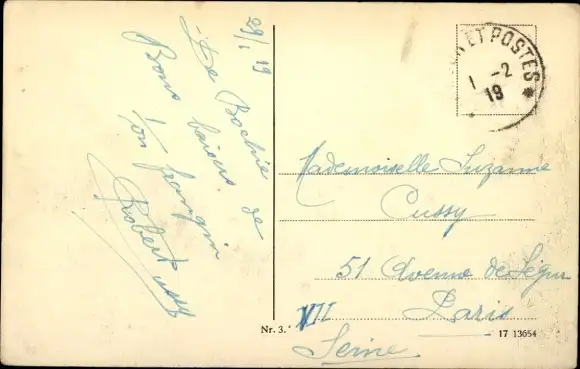 29/1 19
De Bochie de
Bons baisers
Ton frangin
Robert Cussy
ET POSTES *
1 -2
19
Mademoiselle Suzanne
Cussy
51 Avenue de Ségur
Paris
VII
Seine
Nr. 3.
17 13654